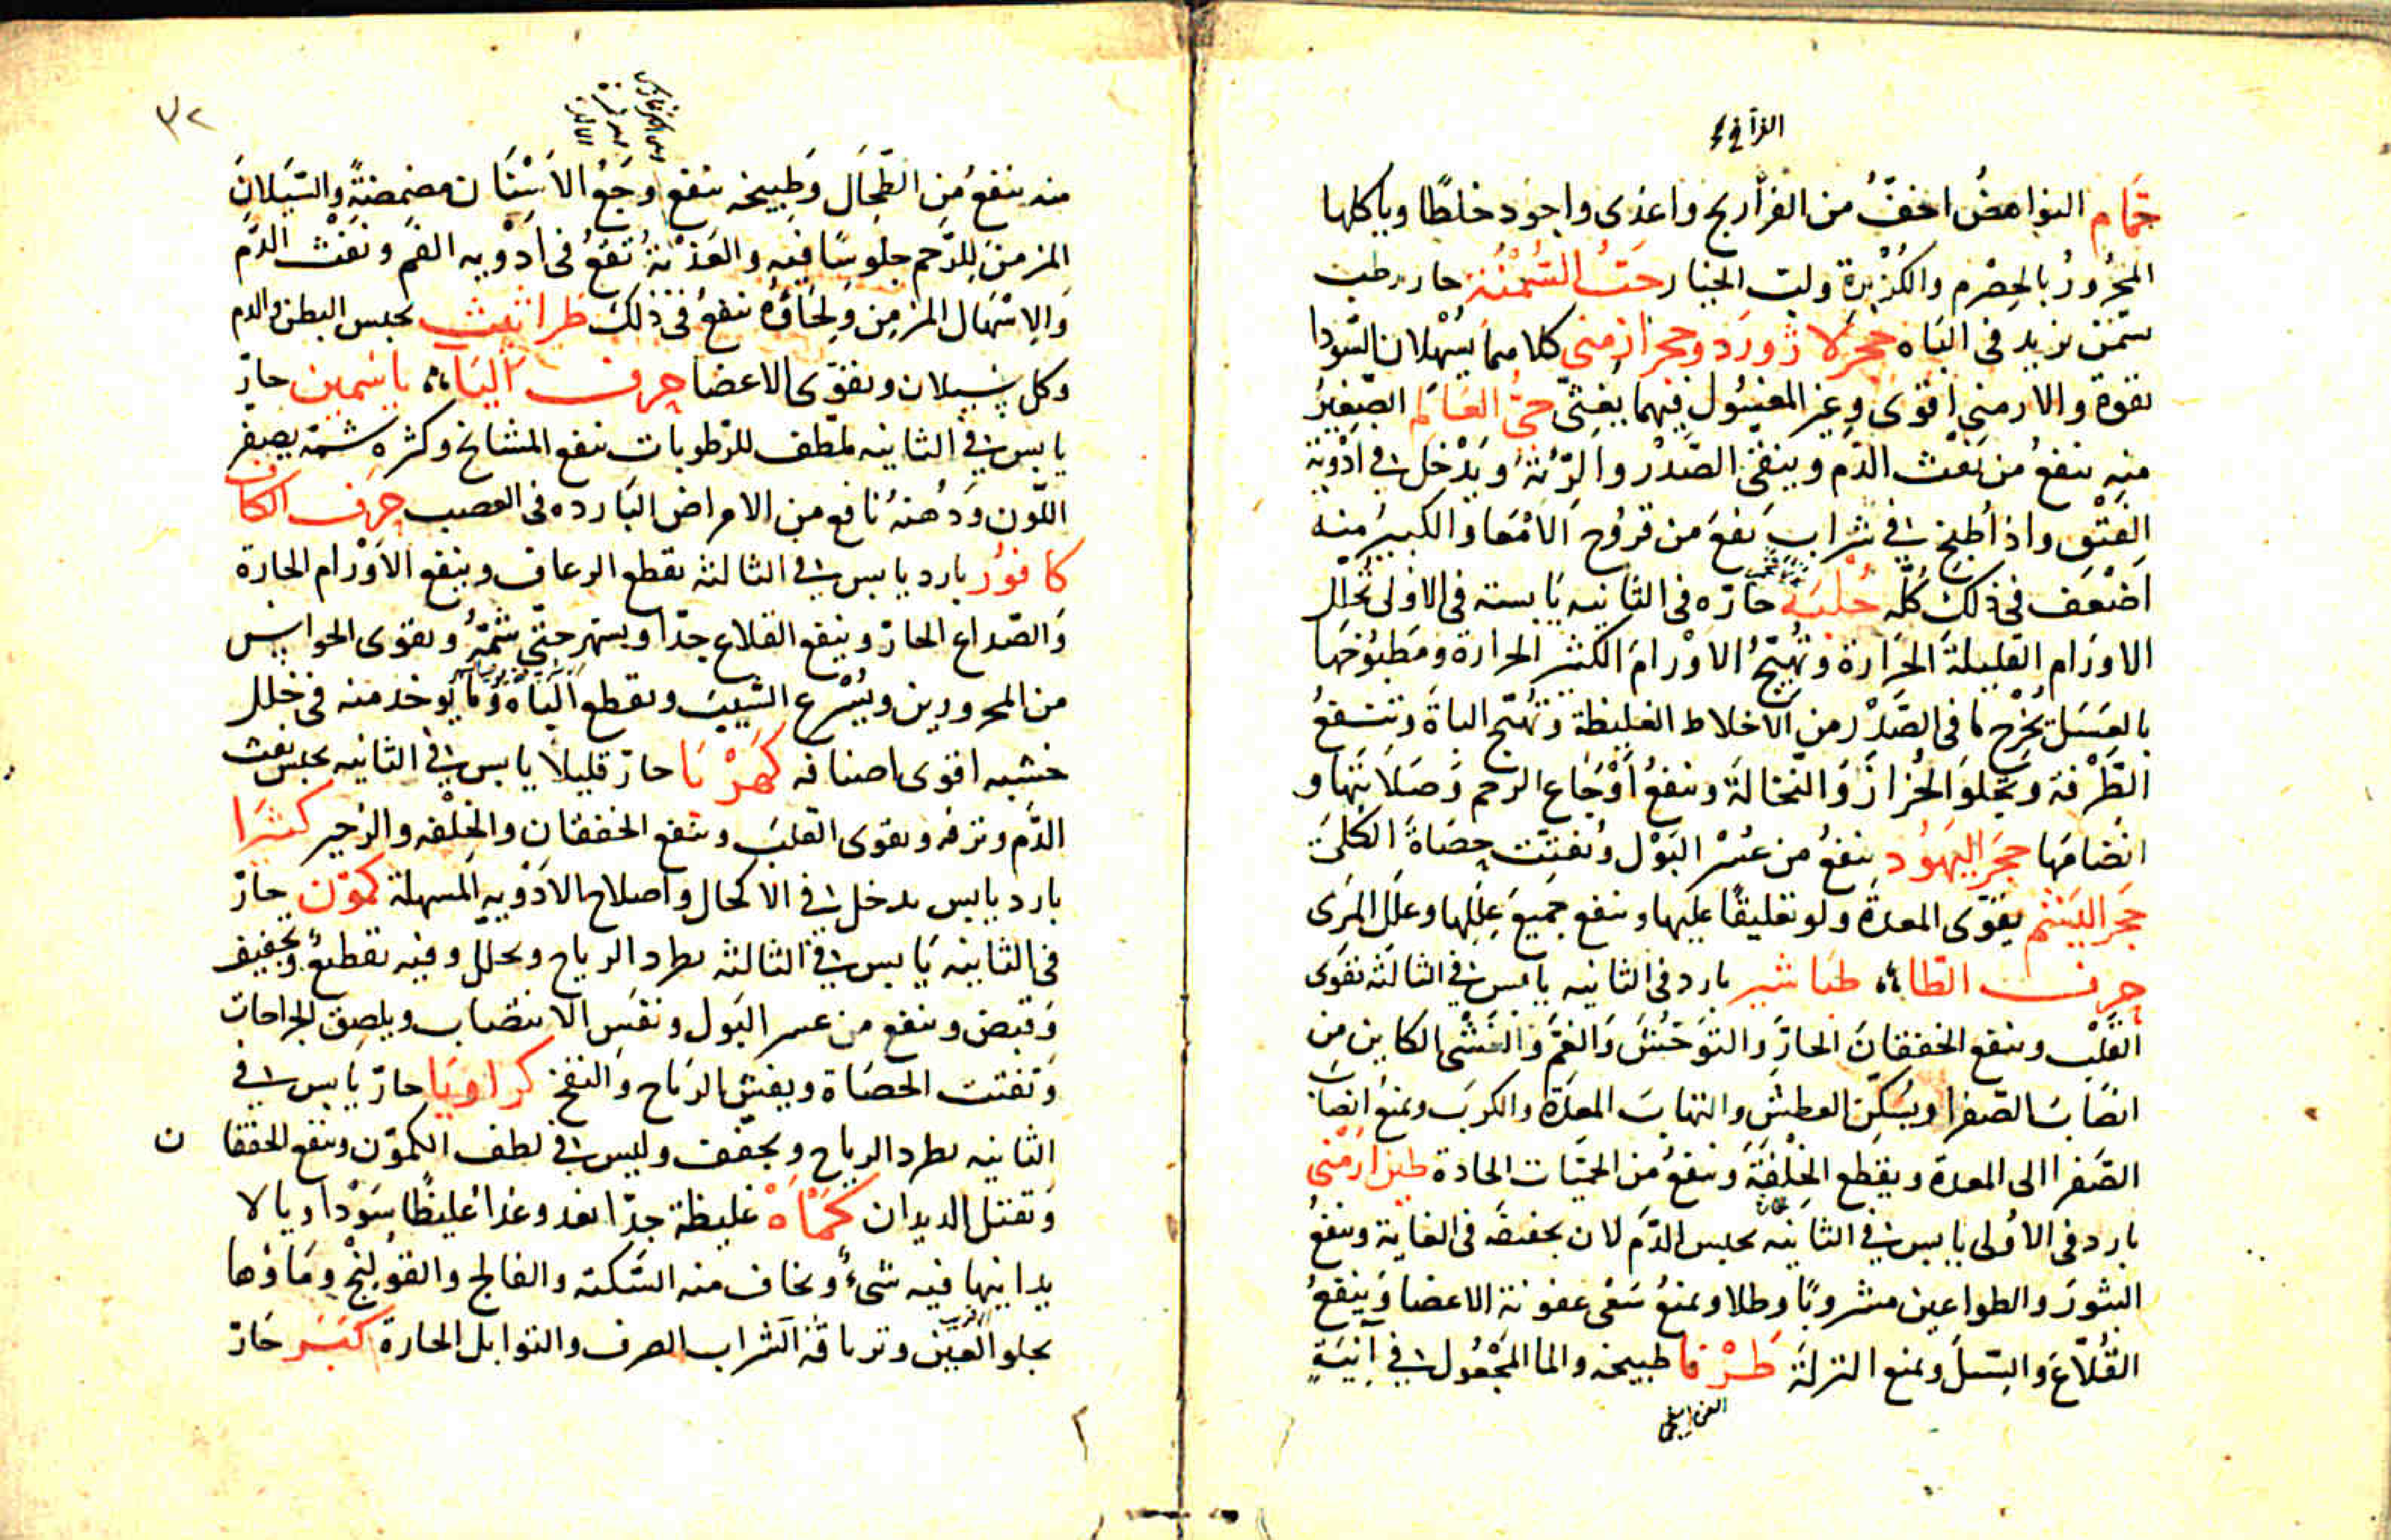 حمام النواهض اخفّ من الفراريج واغذى واجود خلطًا وياكلها
المحرُورُ بالحِصْرم والكُزْبرة ولبّ الخيار حَبُّ السُّمْنَة حار رطب
يسَمّن يزيد فى البَاه حجر لازورد وحجر ارمنى كلاهما يُسْهلان السَّودا
بقوة والارمنى اقوى وغير المغسُول فيهما يغثّى حىّ العَالَم الصّغيرُ
منه ينفعُ من نَفْث الدَّم وينقّى الصَّدْر والرّئة ويَدْخل فى ادْوية
الفَتْق واذا طُبخ فى شراب نفع من قروُح الامْعَا والكبيرُ منه
اضْعَف فى ذلك كلّه حُلْبَه حَارّه فى الثانيه يَابسَة فى الاولى تُحَلّل
الاورَام القليلة الحَرَارة وتُهيّجُ الاوْرامَ الكثير الحرارة ومَطبُوُخهَا
بالعَسَل يُخْرج مَا فى الصَّدْر من الاخلاط الغليظة وتُهيّج الباهَ وتنفعُ
الطَّرْفة وتجلو الحُزازَ والنّخالَة وينفعُ اَوْجَاع الرحم وَصَلابَتَها و
انضمامَها حجَر اليَهُود ينفعُ من عُسْر البَوْل ويُفتّت حصَاةَ الكلَى
حجَر اليَشْم يقَوّى المعدةَ ولو تعليقًا عليها وينفع جميعَ عِلَلِها وعِلَل المَرى
حرف الطاء طبَاشير بارد فى الثانيه يابس فى الثالثه يقوى
القَلْب وينفع الخفقانَ الحارَّ والتوَحُّشَ والغمَّ والغَشْى الكاين من
انصَابَ الصّفرا ويُسَكّن العطش والتهابَ المعدَة والكربَ ويمنَعُ انصبابَ
الصَفرا الى المعدة ويقطع الخِلْفَة وينفعُ من الحمّيَات الحادة طين ارمنى
بارد فى الاُولى يابس فى الثانيه يحبس الدَّم لان تجفيفَه فى الغاية وينفعُ
البثورَ والطواعين مشروبًا وطلا ويمنعُ سَعْى عفونة الاعضا وَينفعُ
القُلاّعَ والسّلَ ويمنع النزلَة طَرْفَا طبيخه والما المَجْعُول فى آنيَةٍ
٣٢
منه ينفعُ من الطّحَال وَطبيخه ينفع وَجَعُ الاَسْنَان مضمضةً والسَّيَلانَ
المزمنَ للرَّحم جلوسًا فيه والعَذْبَةُ تقعُ فى اَدْويه الفَم ونفث الدّم
وَالاِسْهَال المزمِن وَلِحَاؤُه ينفعُ فى ذلك طراثيث يحبس البطن والدم
وكل سَيلان ويقوّى الاعضا حرف اليَاء ياسَمين حارّ
يابس فى الثانيه ملطّف للرّطوبات ينفع المشايخ وكثره شمه يصفر
اللَّون وَدُهنهُ نافع من الامراض البَارده فى العصب حرف الكاف
كافور بارد يابس فى الثالثه يقطع الرعاف وينفع الاَوْرام الحارة
وَالصّداع الحارّ وينفع القلاع جدّا ويسهر حتّى شَمّهُ ويقوى الحواس
من المحرورين ويُسْرع الشّيبَ ويقطع البَاهَ وما يوخد منه فى خلل
خشبه اقوى اصنافه كَهْرَبَا حارّ قليلًا يابس فى الثانيه يحبس نفث
الدَّم ونزفه ويقوى القلبَ وينفع الخفقان والخِلْفه والزحير كثيرا
بارد يابس يدخل فى الاكحال واصلاح الادْويه المسهلة كمّون حارّ
فى الثانيه يَابس فى الثالثه يطرد الرياح ويحلل وفيه تقطيعٌ وتجفيف
وَقبضٌ وينفع من عسر البَول ونفَس الانتصاب ويلصق الجراحات
وَتفتت الحصَاة ويفش الريَاح والنفخ كراويَا حارّ يابس فى
الثانيه يطرد الرياح ويجفّف وليس فى لطف الكموّن وينفع الخفقان
وَتقتل الديدان كَمْاَهْ غليظة جدّا تغدو غذاً غليظًا سَوْداويا لا
يدانيها فيه شىءٌ ويخاف منه السّكته والفالج والقوُلنج ومَاؤها
يجلو العَين وترياقه الشراب الصرف والتوابل الحارة كبَر حَارّ